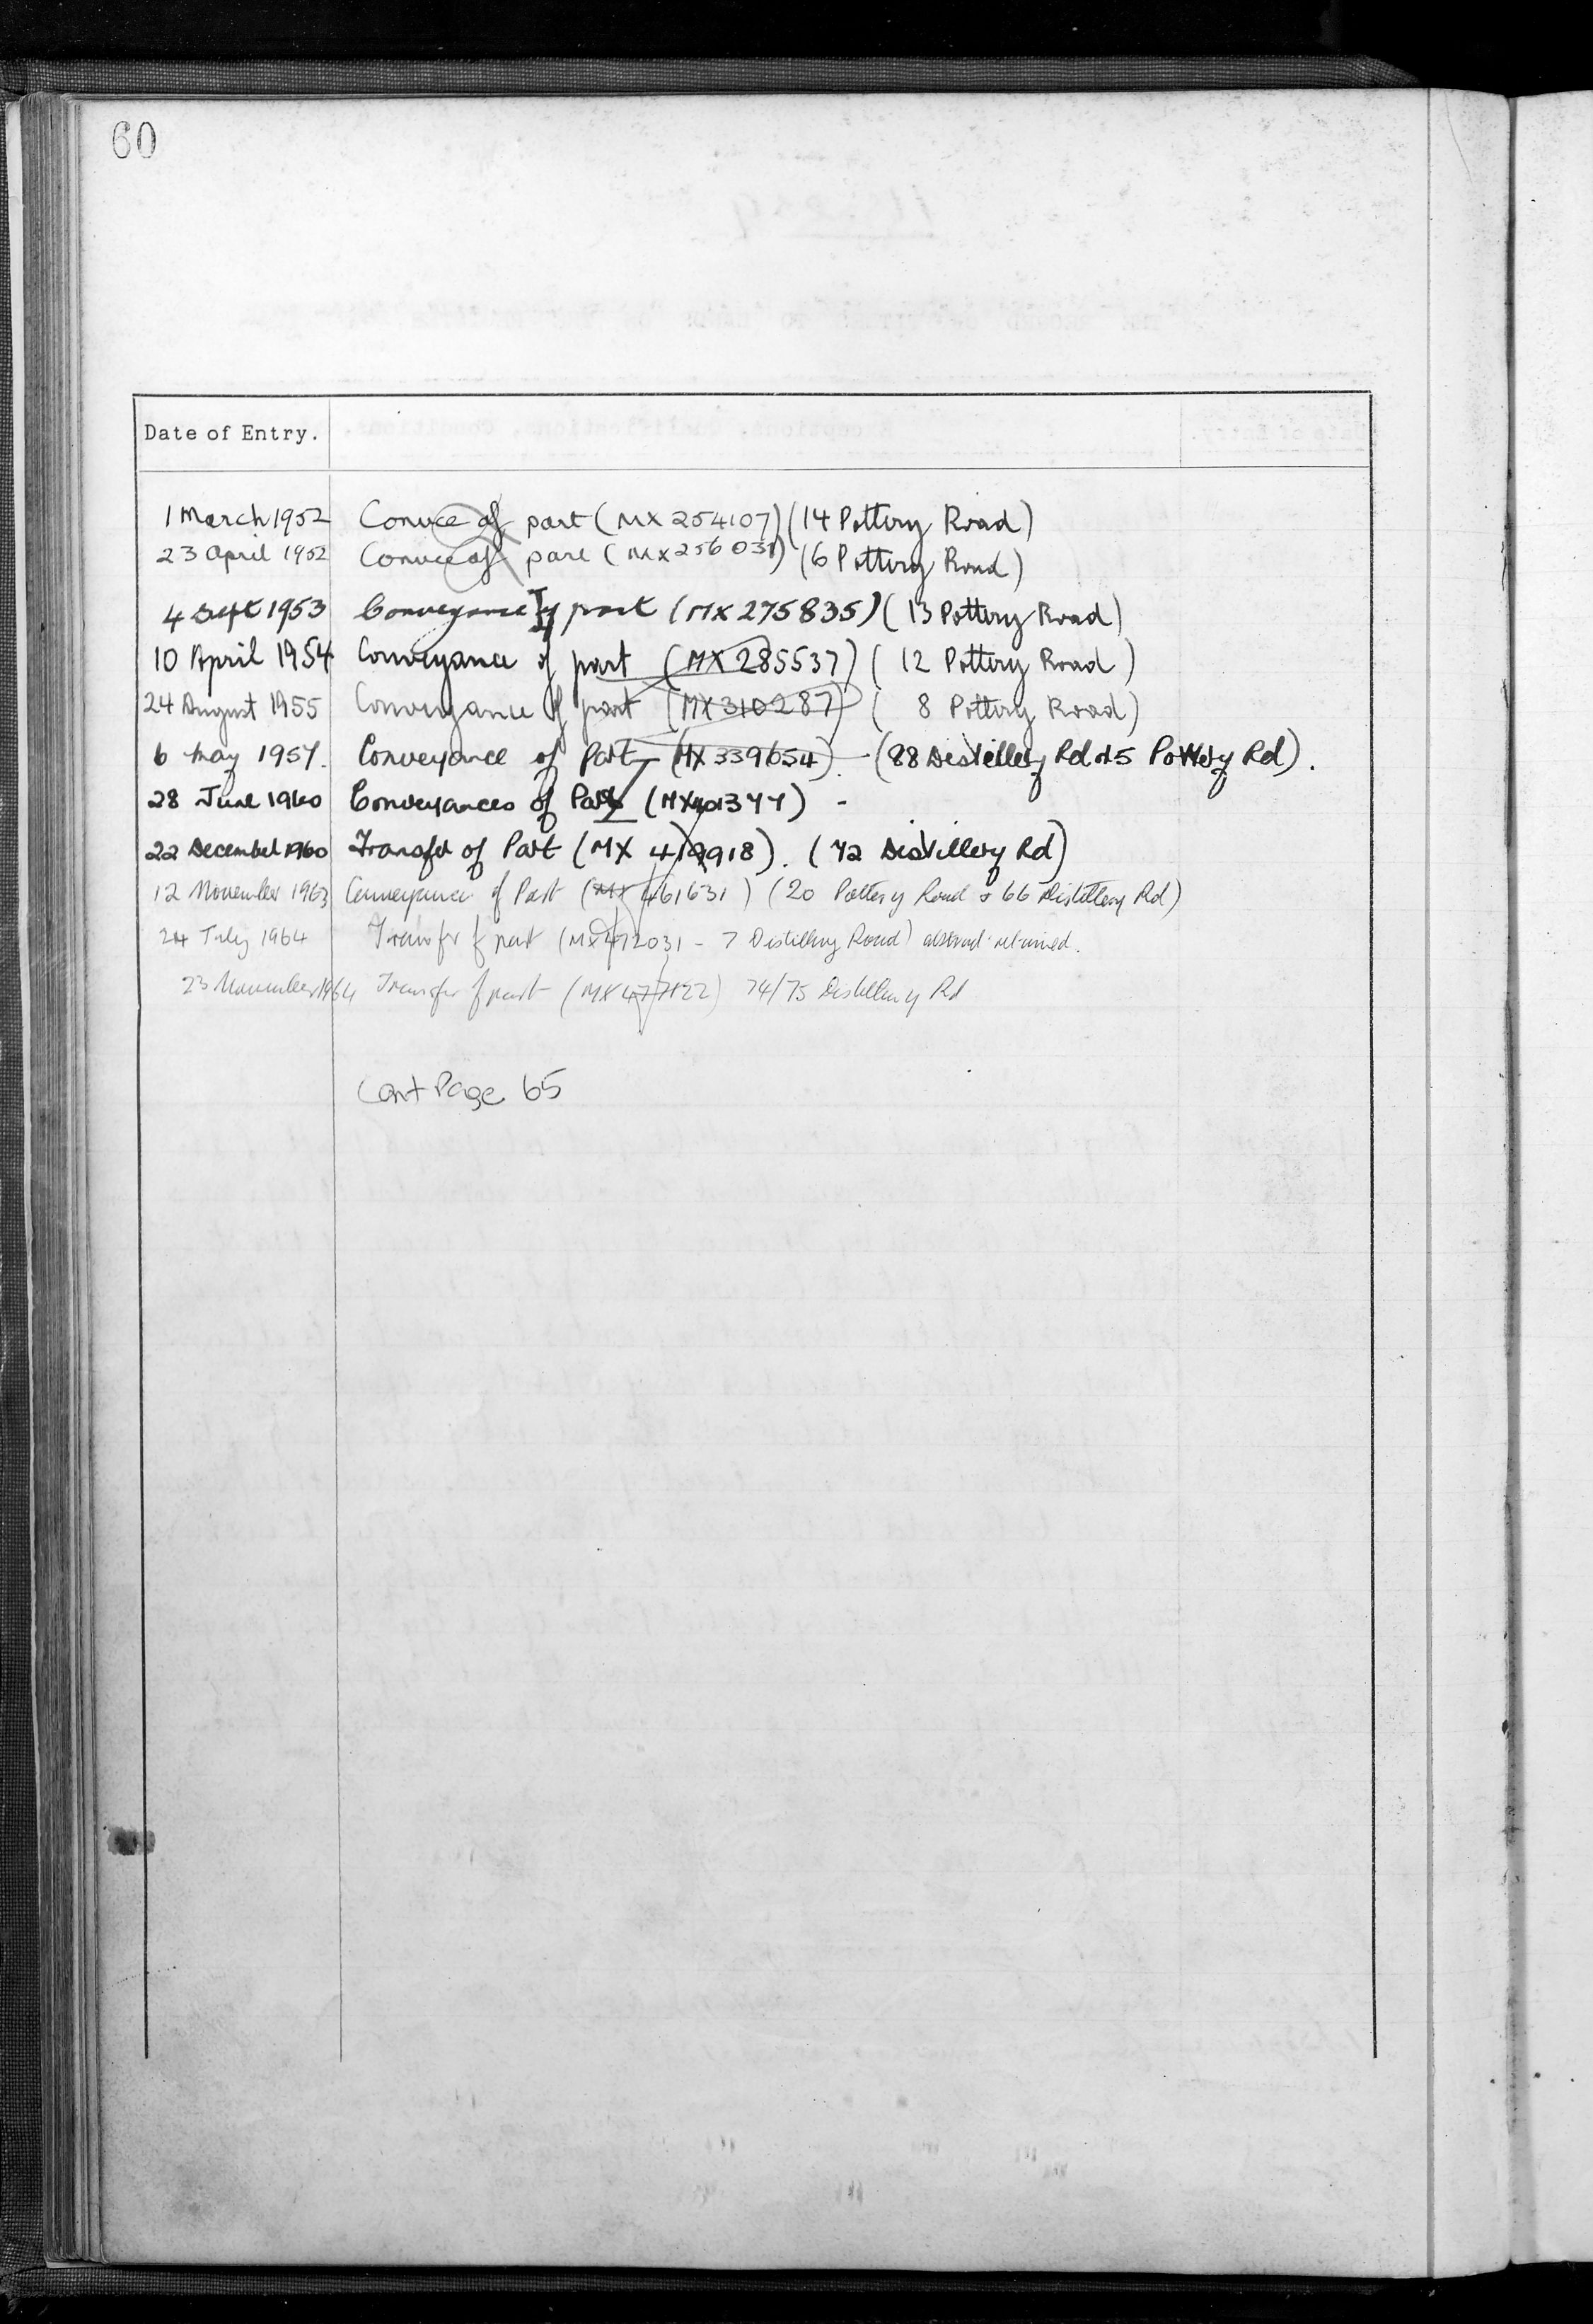 60
Date of Entry.
1 March 1952 Convce of part (MX 254107) (14 Pottery Road)
23 april 1952 Convce of part (MX 256031) (6 Pottery Road)
4 Sept 1953 Conveyance of part (MX 275835) (13 Pottery Road)
10 April 1954 Conveyance of part (MX 285537) ( 12 Pottery Road )
24 August 1955 Conveyance of part (MX 310287) ( 8 Pottery Road)
6 May 1957. Conveyance of Part (MX 339654). - (88 Distillery Rd & 5 Pottery Rd).
28 June 1960 Conveyances of Part (MX401377) -
22 December 1960 Transfer of Part (MX 419918). (72 Distillery Rd)
12 November 1963 Conveyance of Part (MX 461631) (20 Pottery Road & 66 Distillery Rd)
24 July 1964 Transfer of part (MX472031 - 7 Distillery Road) abstract retained.
23 November 1964 Transfer of part (MX 477122) 74/75 Distillery Rd
Cont Page 65